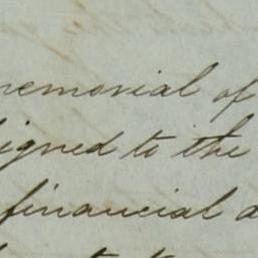 memorial of
signed to the
financial a